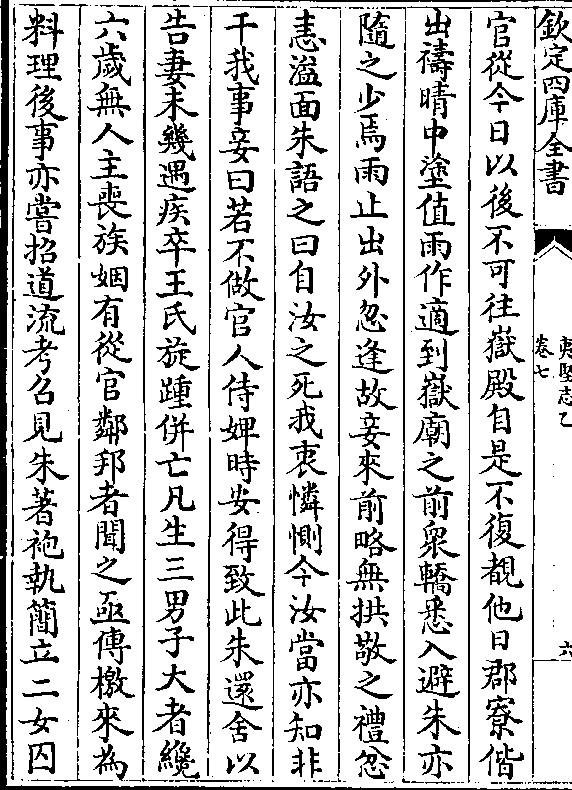 欽定四庫全書
夷堅志乙
卷七
六
官從今日以後不可往嶽殿自是不復覩他日郡寮偕
出禱晴中塗值雨作適到嶽廟之前衆轎悉入避朱亦
隨之少焉雨止出外忽逢故妾來前略無拱敬之禮忿
恚溢面朱語之曰自汝之死我衷憐惻今汝當亦知非
干我事妾曰若不做官人侍婢時安得致此朱還舍以
告妻未幾遇疾卒王氏旋踵併亡凡生三男子大者纔
六歲無人主喪族姻有從官鄰邦者聞之亟傳檄來為
料理後事亦嘗招道流考召見朱著袍執簡立二女囚